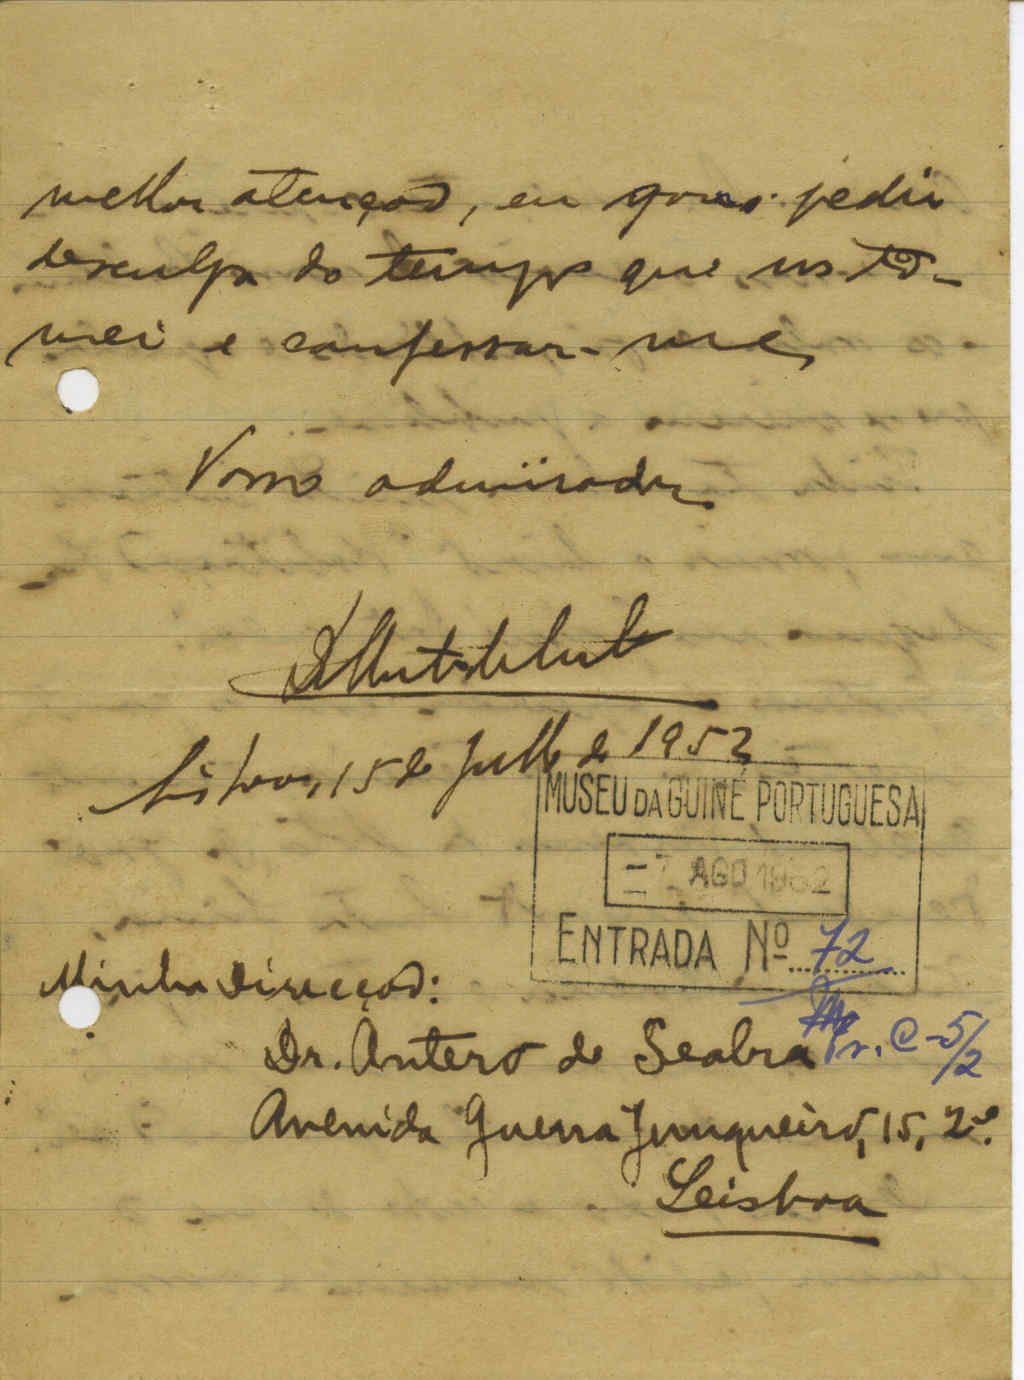 melhor atenção, eu quero pedir
desculpa do tempo que vos to-
mei e confessar-me,
Vosso admirador
Lisboa, 15 de Julho de 1952
MUSEU DA GUINÉ PORTUGUESA
-7 AGO 1952
ENTRADA Nº 72
Minha direcção:
Dr. Antero de Seabra
Pr. C-5/2
Avenida Guerra Junqueiro, 15, 2º.
Leisboa